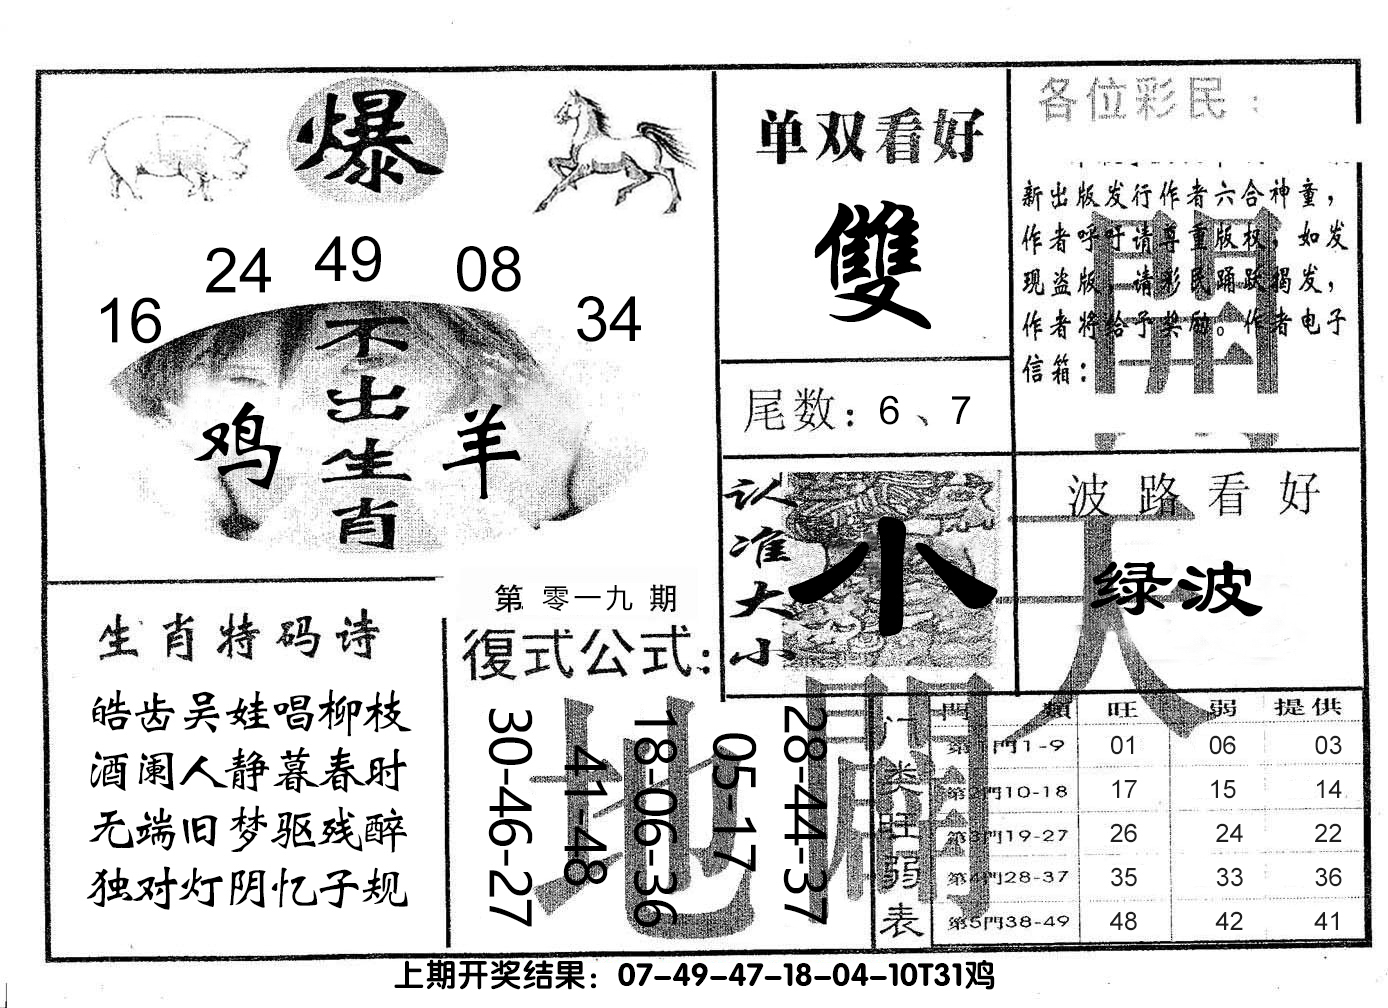 爆
16
24
49
08
34
不出生肖
鸡
羊
单双看好
雙
尾数：6、7
各位彩民：
新出版发行作者六合神童，
作者呼吁请尊重版权，如发
现盗版，请彩民踊跃揭发，
作者将给予奖励。作者电子
信箱：
開
认准大小
小
波路看好
绿波
天
生肖特码诗
皓齿吴娃唱柳枝
酒阑人静暮春时
无端旧梦驱残醉
独对灯阴忆子规
第零一九期
復式公式：
30-46-27
41-48
18-06-36
05-17
28-44-37
地
開
门类旺弱表
門類 旺 弱 提供
第1門1-9 01 06 03
第2門10-18 17 15 14
第3門19-27 26 24 22
第4門28-37 35 33 36
第5門38-49 48 42 41
上期开奖结果：07-49-47-18-04-10T31鸡